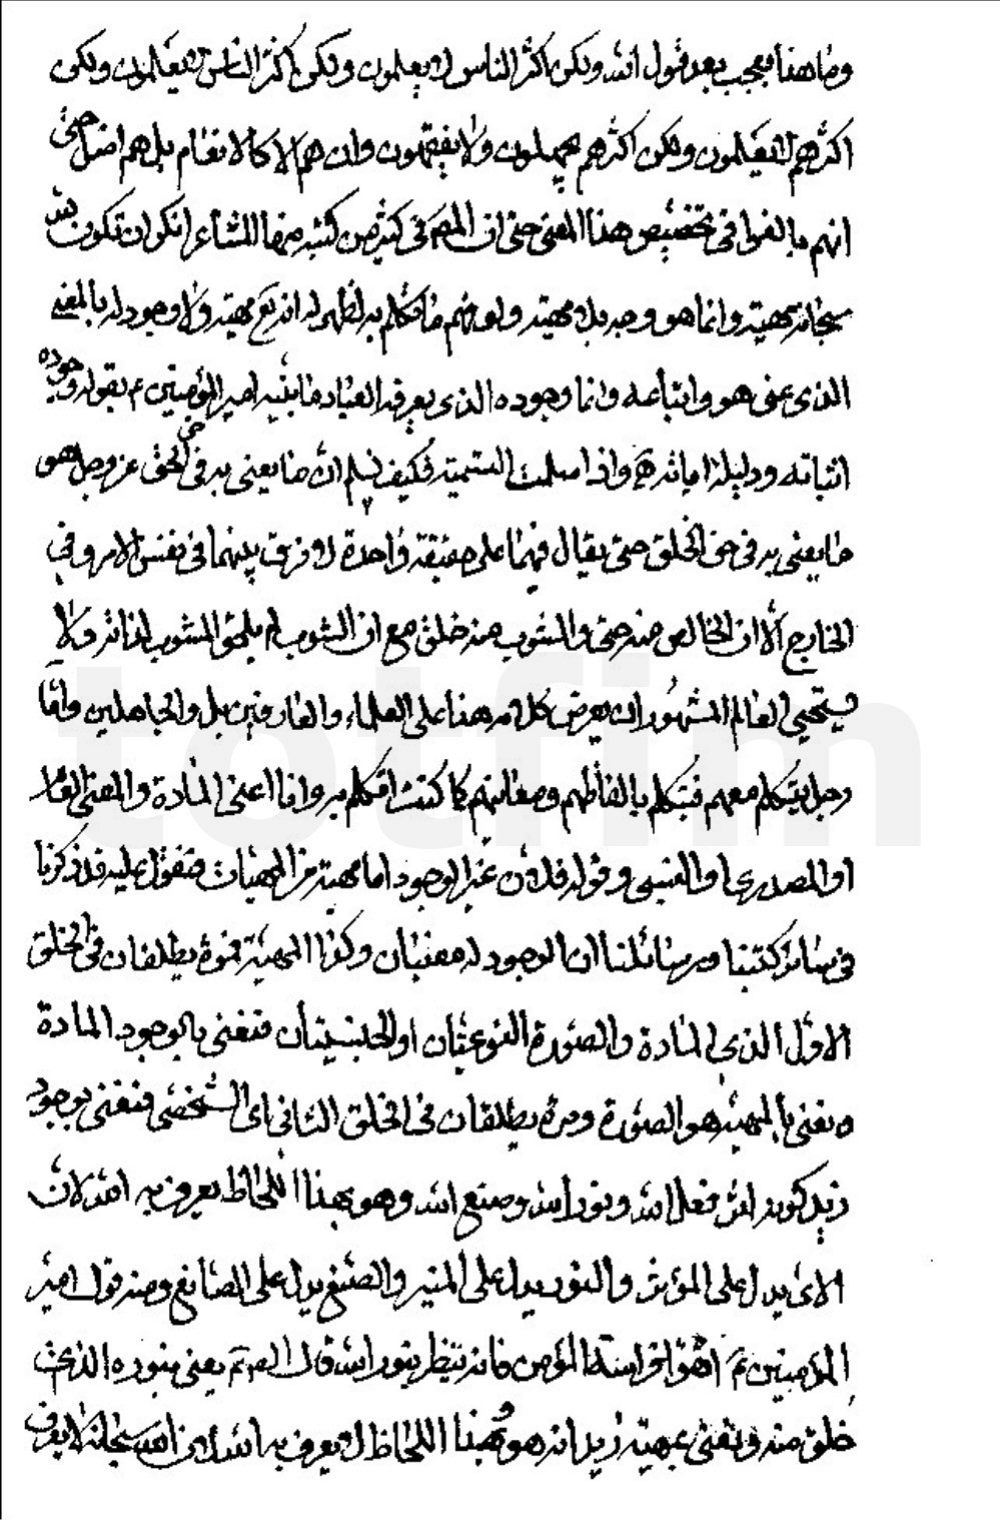 وما هذا بعجب بعد قول الله ولكن اكثر الناس لا يعلمون ولكن اكثر الناس لا يعقلون ولكن
اكثرهم لا يعقلون ولكن اكثرهم يجهلون ولا يفقهون وان هم الا كالانعام بل هم اضل حتى
انهم بالغوا في تخصيص هذا المعنى حتى ان المصـ في كثير من كتبه منها المشاعر انكر ان تكون لله
سبحانه مهية وانما هو وجود بلا مهية ولو فهم ما تكلم به لظهر له انه مهية ولا وجود له بالمعنى
الذي عنى هو واتباعه وانما وجوده الذي يعرفه العباد ما بينه امير المؤمنين ع بقوله وجوده
اثباته ودليله اياته واذا سلمت التسمية فكيف يسلم ان ما يعنى به في حق الحق عز وجل هو
ما يعنى به في حق الخلق حتى يقال فيهما على حقيقة واحدة لا فرق بينهما في نفس الامر وفي
الخارج الا ان الخالص منه حق والمشوب منه خلق مع ان الشوب لم يلحق المشوب لذاته ولا
يستحيي العالم المشهور ان يعرض كلامه هذا على العلماء والعارفين بل والجاهلين واما
رجل يتكلم معهم فيتكلم بالفاظهم ومعانيهم كما كنت اتكلم به وانا اعنى المادة والمعنى العام
او المصدري او النسبي وقوله فلان غير الوجود اما مهية من المهيات فنقول عليه قد ذكرنا
في سائر كتبنا ورسائلنا ان الوجود له معنيان وكذا المهية فمرة يطلقان في الخلق
الاول الذي المادة والصورة النوعيتان او الجنسيتان فنعنى بالوجود المادة
ونعنى بالمهية هو الصورة ومرة يطلقان في الخلق الثاني اى الشخصى فنعنى بوجود
زيد كونه اثر فعل الله ونور الله وصنع الله وهو بهذا اللحاظ يعرف به الله لان
الاثر يدل على المؤثر والنور يدل على المنير والصنع يدل على الصانع ومنه قول امير
المؤمنين ع اتقوا فراسة المؤمن فانه ينظر بنور الله قال ع يعنى بنوره الذى
خلق منه ونعنى بمهية زيد انه هو وبهذا اللحاظ لا يعرف به الله لان الله سبحانه لا يعرف
totfim